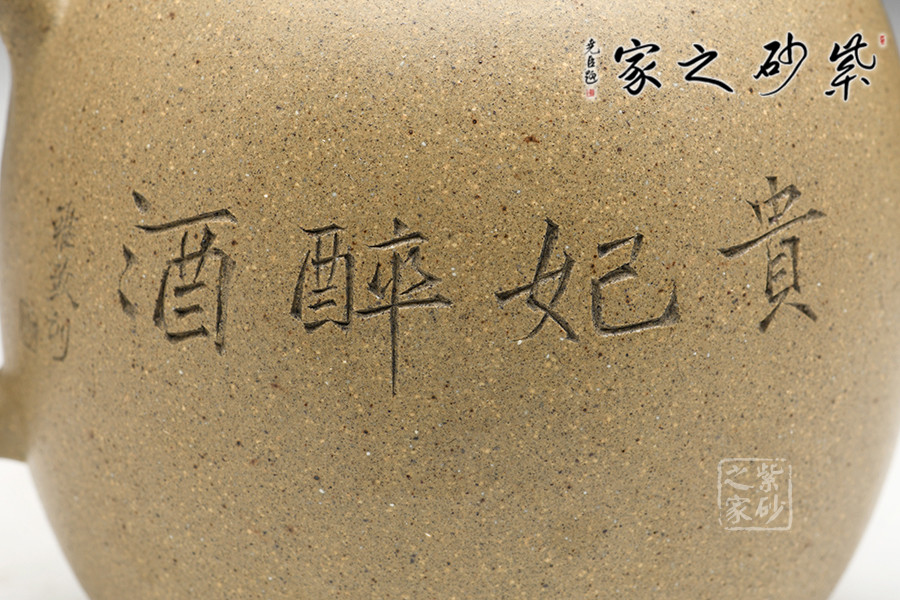 紫砂之家
貴妃醉酒
紫砂之家